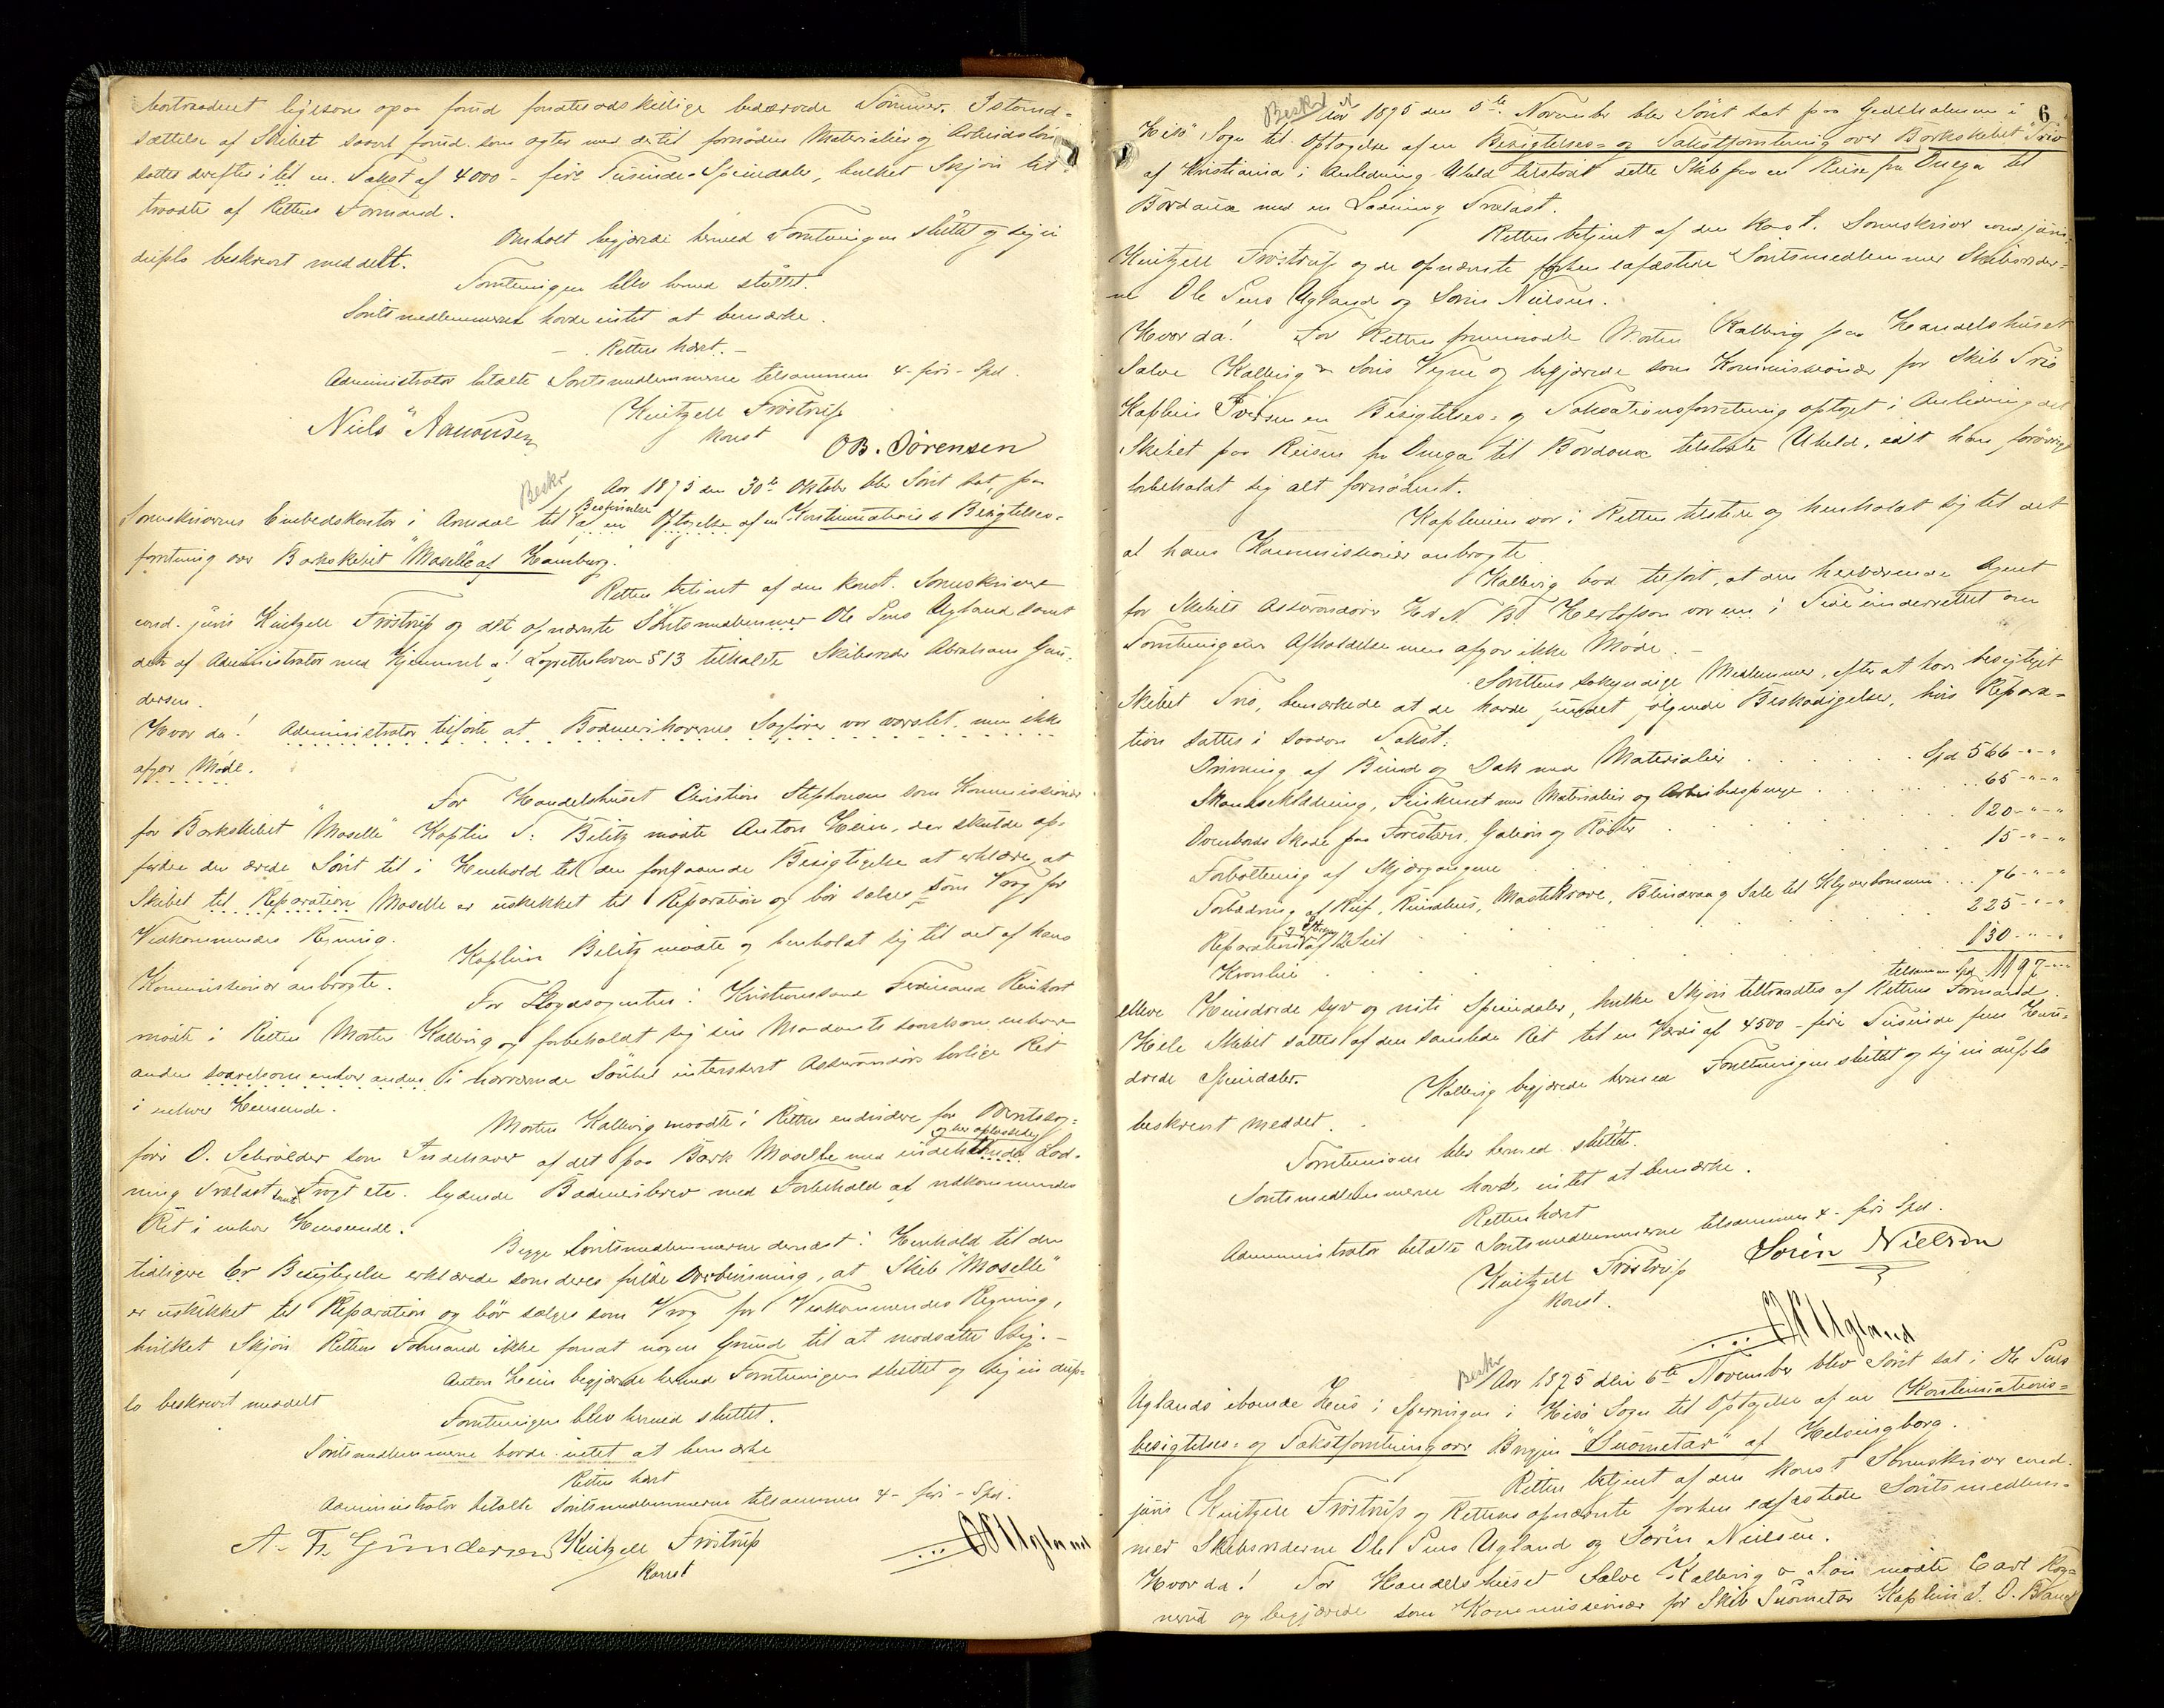 bortraadnet ligesom opaa forud fandtes adskillige bedærvede Tømmer. Istand-
sættelse af Skibet saavel forud som agter med dertil fornøden Materialier og Arbeidsløn
sattes derefter i til en Takst af 4000 - fire Tusinde - Speciedaler, hvilket Skjøn til-
traadtes af Rettens Formand.
Omholt begjærede hermed Forretningen sluttet og sig in
duplo beskrevet meddelt.
Forretningen blev hermed sluttet.
Søretsmedlemmerne havde intet at bemærke.
- Retten hævet. -
Administrator betalte Søretsmedlemmerne tilsammen 4 - fire - Spd.
Niels Aanonsen Knitzell Frøstrup
Konst OB. Sørensen
Beskr
Aar 1875 den 30te Oktober blev Søret sat paa
Sorenskriverens Embedskontor i Arendal til Beskrivelse af en Optagelse af en Kontinuations & Besigtelses-
forretning over Barkskibet "Moselle" af Hamburg.
Retten betjent af den konst. Sorenskriver
cand. juris Knitzell Frøstrup og det opnævnte Søretsmedlemmer Ole Jens Ugland samt
den af Administrator med Hjemmel af Søretslovens § 13 tilkaldte Skibsreder Abraham Gun-
dersen.
Hvorda! Administrator tilførte at Bodmerihaverens Sagfører var varslet men ikke
afgav Møde.
For Handelshuset Christian Stephansen som Kommissionær
for Barkskibet "Moselle" Kaptein T. Bilitz mødte Anton Hein, der skulde op-
fordre den ærede Søret til i Henhold til den foretagende Besigtigelse at erklære at
Skibet til Reparation Moselle er uskikket til Reparation og bør sælges som Vrag for
Vedkommendes Regning.
Kaptein Bilitz mødte og henholdt sig til det af hans
Kommissionær anbragte.
For Lloydsagenten i Kristianssand Ferdinand Reinhardt
mødte i Retten Morten Kallevig og forbeholdt sig sin Mandants saavelsom enhver
anden saavelsom enhver anden i nærværende Søuheld interesseret Assurandørs lovlige Ret
i enhver Henseende.
Morten Kallevig mødte i Retten endvidere for Overretssag-
fører O. Schrøder som Indehaver af det paa Bark Moselle med indehavende og her oplossede Lad-
ning Trælast samt Fragt etc. lydende Bodmeribrev med Forbehold af vedkommendes
Ret i enhver Henseende.
Begge Søretsmedlemmerne dernæst i Henhold til den
tidligere Er Besigtigelse erklærede som deres fulde Overbevisning, at Skib "Moselle"
er uskikket til Reparation og bør sælges som Vrag for Vedkommendes Regning,
hvilket Skjøn Rettens Formand ikke fandt nogen Grund til at modsætte sig. -
Anton Hein begjærede hermed Forretningen sluttet og sig in dup-
lo beskrevet meddelt
Forretningen blev hermed sluttet.
Søretsmedlemmerne havde intet at bemærke
Retten hævet
Administrator betalte Søretsmedlemmerne tilsammen 4 - fire - Spd.
A. Fr. Gundersen Knitzell Frøstrup OJUgland
Konst
6
Beskr
Aar 1875 den 5te November blev Søret sat paa Gjedeholmen i
Hisø Sogn til Optagelse af en Besigtelses- og Takstforretning over Barkskibet "Trio"
af Kristiania i Anledning Uheld tilstødt dette Skib paa en Reise fra Onega til
Bordaux med en Ladning Trælast.
Retten betjent af den konst. Sorenskriver cand. juris
Knitzell Frøstrup og de opnævnte forhen edfæstede Søretsmedlemmer Skibsreder-
ne Ole Jens Ugland og Sørin Nielsen.
Hvorda! For Retten fremmødte Morten Kallevig paa Handelshuset
Salve Kallevig & Søns Vegne og begjærede som Kommissionær for Skib Trio
Kaptein Iversen en Besigtelses- og Taksationsforretning optaget i Anledning det
Skibet paa Reisen fra Onega til Bordaux tilstødte Uheld, idet han forøvrigt
forbeholdt sig alt fornødent.
Kapteinen var i Retten tilstede og henholdt sig til det
af hans Kommissionær anbragte.
Kallevig bad tilført, at den herværende Agent
for Skibets Assurandører Hr N. B. Herlofson var em i Tide underrettet om
Forretningens Afholdelse men afgav ikke Møde. -
Søretsens sakyndige Medlemmer, efter at have besigtiget
Skibet Trio, bemærkede at de havde fundet følgende Beskadigelser, hvis Repara-
tion sattes i saadan Takst:
Drivning af Bund og Dæk med Materialier . . . . . . Spd 566 - " - "
Skandseklædning, Finkenet med Materialier og Arbeidspenge . . . . . 65 - " - "
Ovenbords Skade paa Forestavn, Galion og Røster . . . . . 120 - " - "
Forboltning af Skjærgangene . . . . . 15 - " - "
Forbedring af Ruf, Rundhus, Mastekrave, Blinderaa og Sale til Klyverbommen . . . 76 - " - "
Reparation og Skring af 12 Seil . . . . . 225 - " - "
Kranbie . . . . . 130 - " - "
tilsammen Spd 1197 - " - "
elleve Hundrede syv og niti Speciedaler, hvilke Skjøn tiltraadtes af Rettens Formand.
Hele Skibet sattes af den samlede Ret til en Værdi af 4500 - fire Tusinde fem Hun-
drede Speciedaler.
Kallevig begjærede hermed Forretningen sluttet og sig in duplo
beskrevet meddelt.
Forretningen blev hermed sluttet.
Søretsmedlemmerne havde intet at bemærke.
Retten hævet
Administrator betalte Søretsmedlemmerne tilsammen 4 - fire Spd.
Knitzell Frøstrup Sørin Nielsen
Konst.
OJUgland
Beskr
Aar 1875 den 6te November blev Søret sat i Ole Jens
Uglands iboende Hus i Sperringen i Hisø Sogn til Optagelse af en Kontinuations-
besigtelses- og Takstforretning over Briggen "Suometar" af Helsingborg.
Retten betjent af den konst Sorenskriver cand.
juris Knitzell Frøstrup og Rettens opnævnte forhen edfæstede Søretsmedlem-
mer Skibsrederne Ole Jens Ugland og Sørin Nielsen.
Hvorda! For Handelshuset Salve Kallevig & Søn mødte Carl Rog-
nerud og begjærede som Kommissionær for Skib Suometar Kaptein J. O. Brand